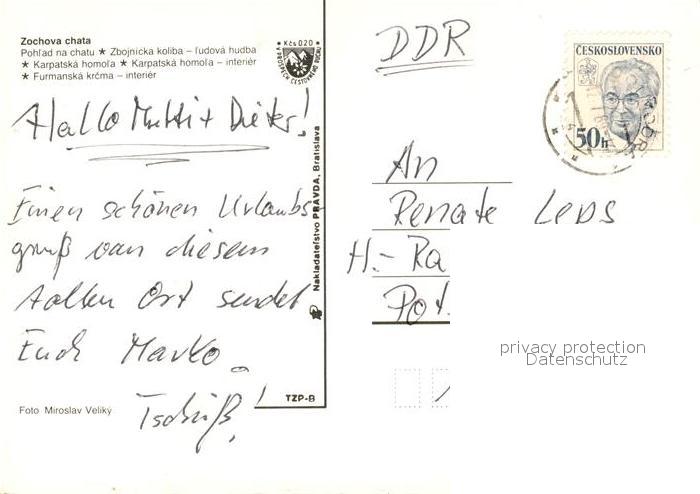 Zochova chata
Pohľad na chatu ★ Zbojnícka koliba – ľudová hudba
★ Karpatská homoľa ★ Karpatská homoľa – interiér
★ Furmanská krčma – interiér
Kčs 020
Hallo Mutti + Dieter!
Einen schönen Urlaubs-
gruß von diesem
tollen Ort sendet
Euch Marko
Tschüß!
Foto Miroslav Veliký
TZP-B
Nakladateľstvo PRAVDA, Bratislava
DDR
ČESKOSLOVENSKO
50h
An
Renate Leps
H.-Ra
Pot.
privacy protection
Datenschutz